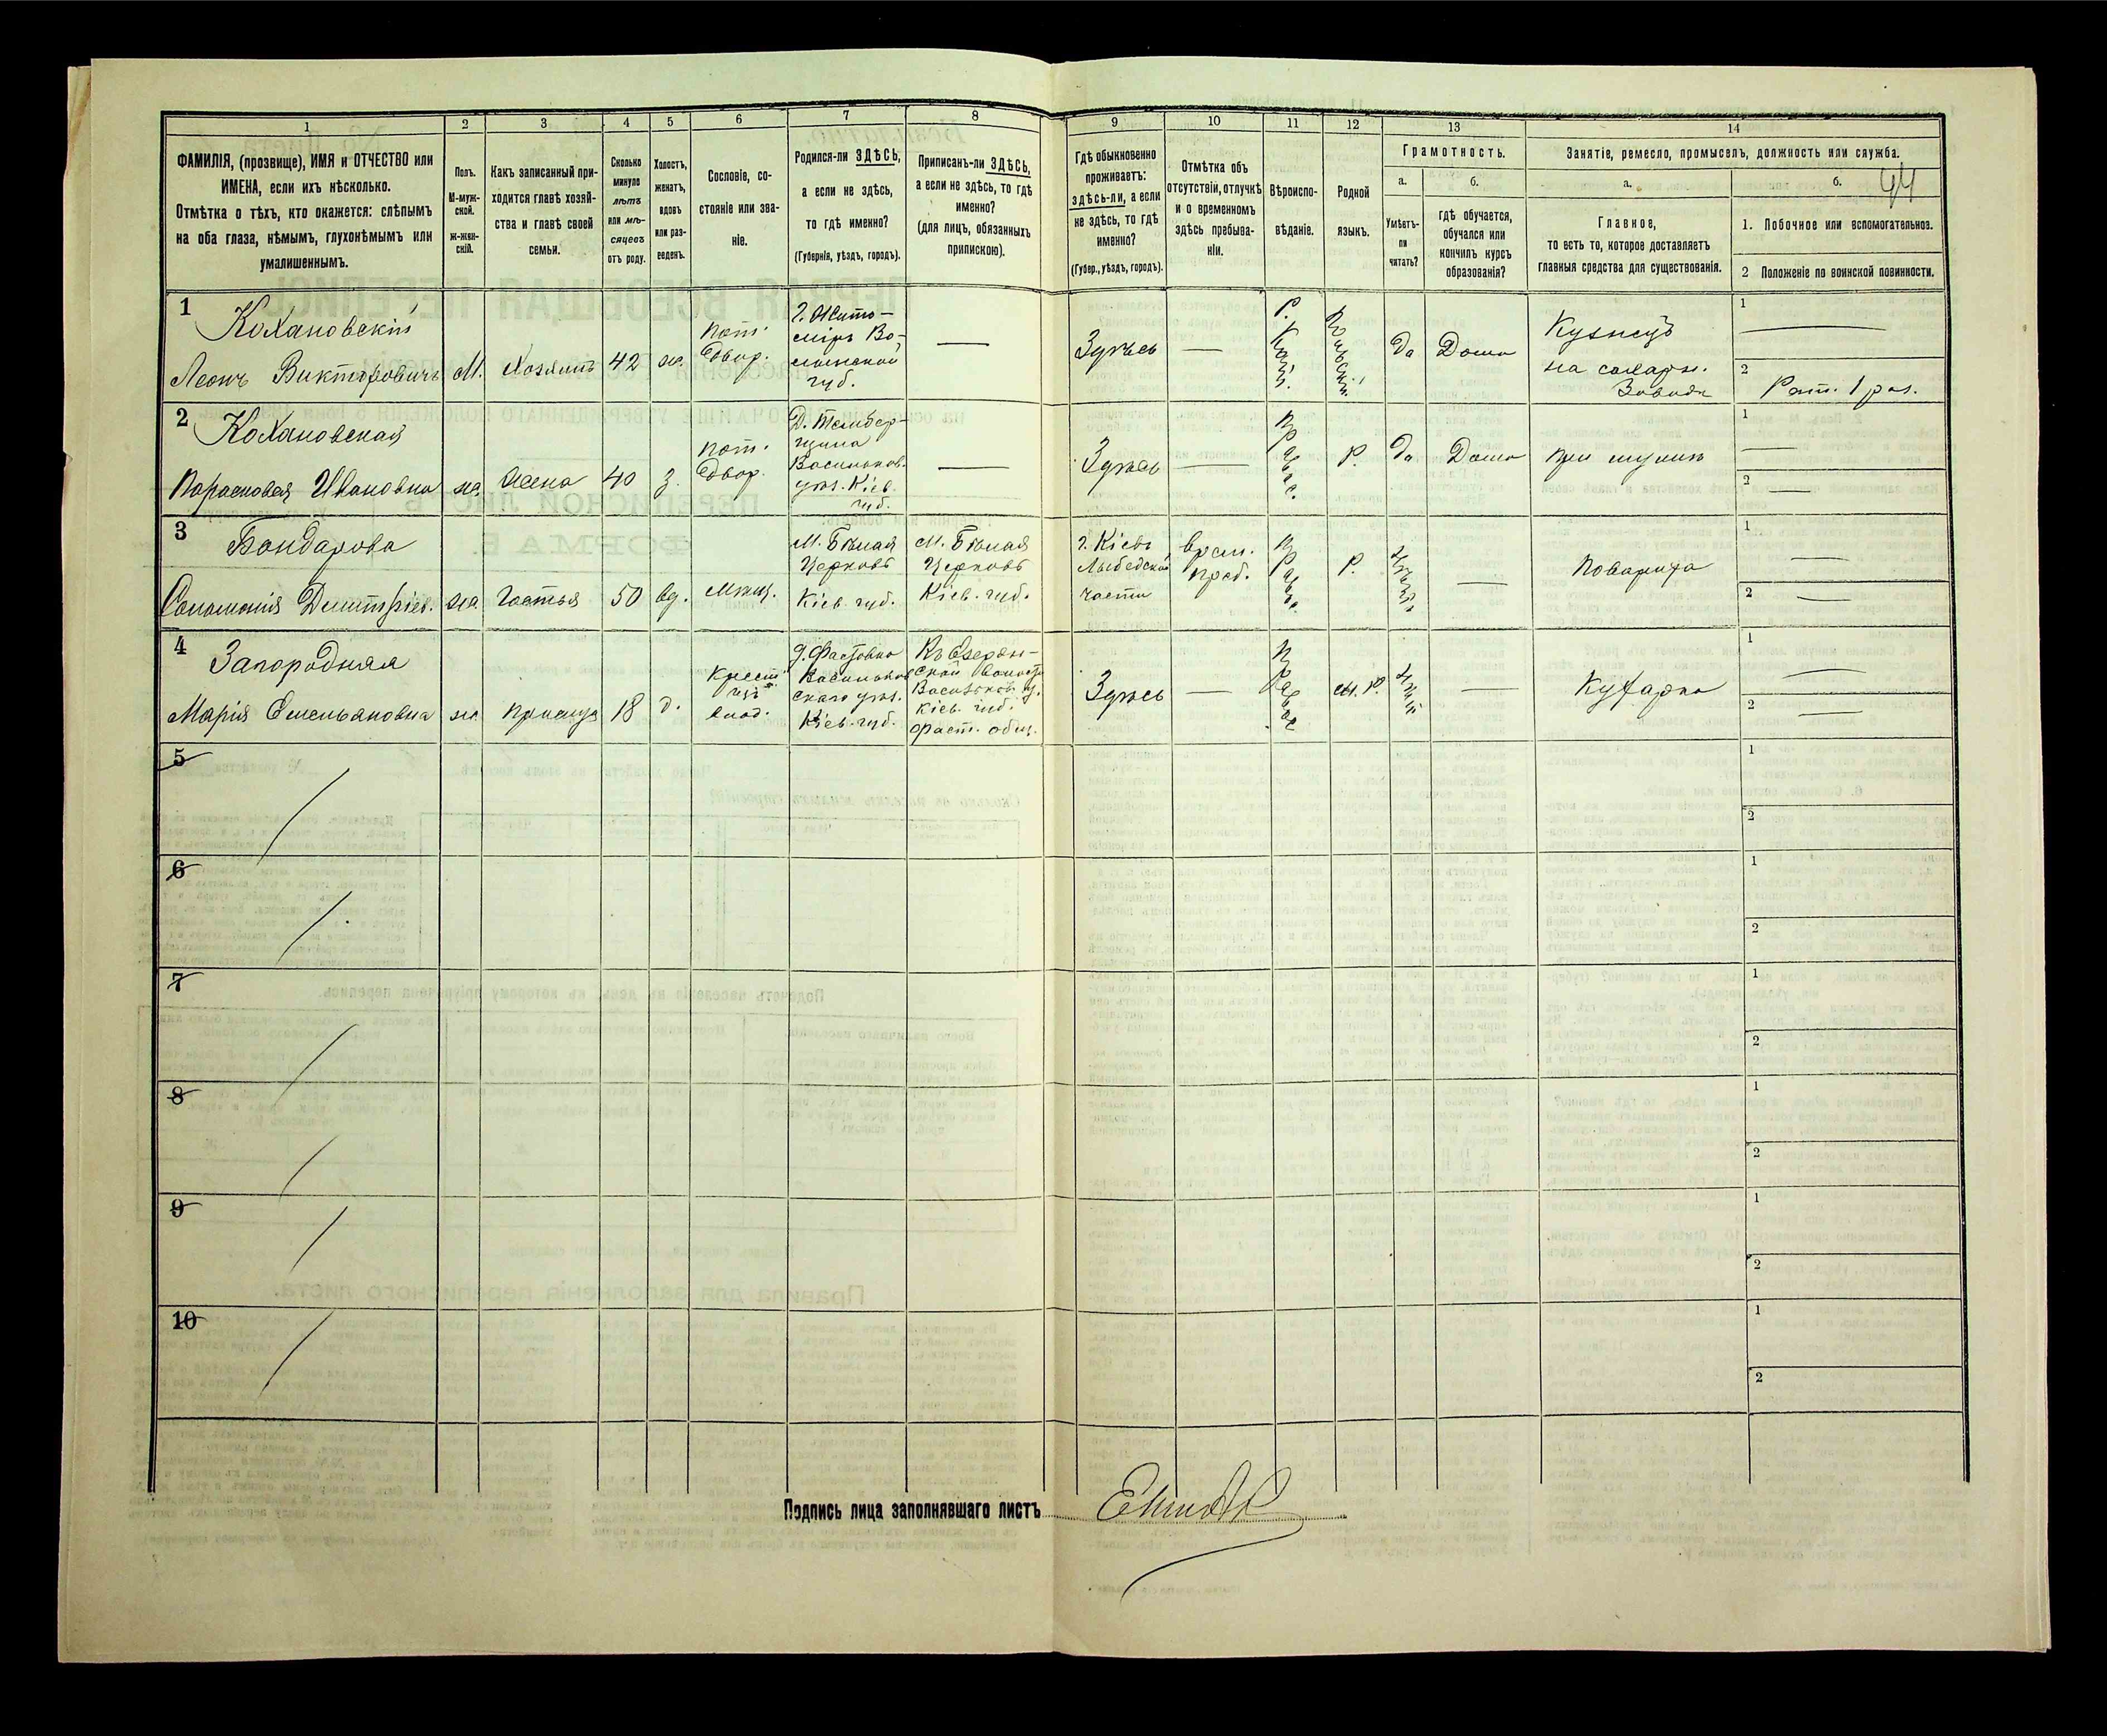 1
2
3
4
5
6
7
8
9
10
11
12
13
14
ФАМИЛІЯ, (прозвище), ИМЯ и ОТЧЕСТВО или
ИМЕНА, если ихъ нѣсколько.
Отмѣтка о тѣхъ, кто окажется: слѣпымъ
на оба глаза, нѣмымъ, глухонѣмымъ или
умалишеннымъ.
Полъ.
М-муж-
ской.
ж-жен-
скій.
Какъ записанный при-
ходится главѣ хозяй-
ства и главѣ своей
семьи.
Сколько
минуло
лѣтъ
или мѣ-
сяцевъ
отъ роду.
Холостъ,
женатъ,
вдовъ
или раз-
веденъ.
Сословіе, со-
стояніе или зва-
ніе.
Родился-ли ЗДѢСЬ,
а если не здѣсь,
то гдѣ именно?
(Губернія, уѣздъ, городъ).
Приписанъ-ли ЗДѢСЬ,
а если не здѣсь, то гдѣ
именно?
(для лицъ, обязанныхъ
припискою).
Гдѣ обыкновенно
проживаетъ:
здѣсь-ли, а если
не здѣсь, то гдѣ
именно?
(Губер., уѣздъ, городъ).
Отмѣтка объ
отсутствіи, отлучкѣ
и о временномъ
здѣсь пребыва-
ніи.
Вѣроиспо-
вѣданіе.
Родной
языкъ.
Грамотность.
а.
б.
Умѣетъ-
ли
читать?
гдѣ обучается,
обучался или
кончилъ курсъ
образованія?
Занятіе, ремесло, промыселъ, должность или служба.
а.
б.
44
Главное,
то есть то, которое доставляетъ
главныя средства для существованія.
1. Побочное или вспомогательное.
2 Положеніе по воинской повинности.
1
Кохановскій
Леонъ Викторовичъ
М.
Хозяинъ
42
ж.
пот.
двор.
г. Жито-
міръ Во-
лынской
губ.
—
Здѣсь
—
Р. Кат.
Польскій
да
Дома
Кузнецъ
на сахарн.
Заводѣ
1
2
Рат. 1 раз.
2
Кохановская
Парасковея Ивановна
ж.
Жена
40
з.
пот.
двор.
Васильков.
уѣз. Кіев.
губ.
—
Здѣсь
—
Правос.
Р.
да
Дома
при мужѣ
1
2
3
Бондарова
Соломонія Димитріев.
ж.
Гостья
50
вд.
Мѣщ.
М. Бѣлая
Церковь
Кіев. губ.
М. Бѣлая
Церковь
Кіев. губ.
г. Кіевъ
Лыбедской
части
врем.
преб.
Р.
—
Повариха
1
2
4
Запородняя
Марія Емельяновна
ж.
прислуга
18
д.
Крест.
изъ
влад.
д. Фастовка
Васильков
скаго уѣз.
Кіев. губ.
Васильков. у.
Кіев. губ.
Фаст. общ.
Здѣсь
—
Правос
м. Р.
—
Кухарка
1
2
5
1
2
6
1
2
7
1
2
8
1
2
9
1
2
10
1
2
Подпись лица заполнявшаго листъ